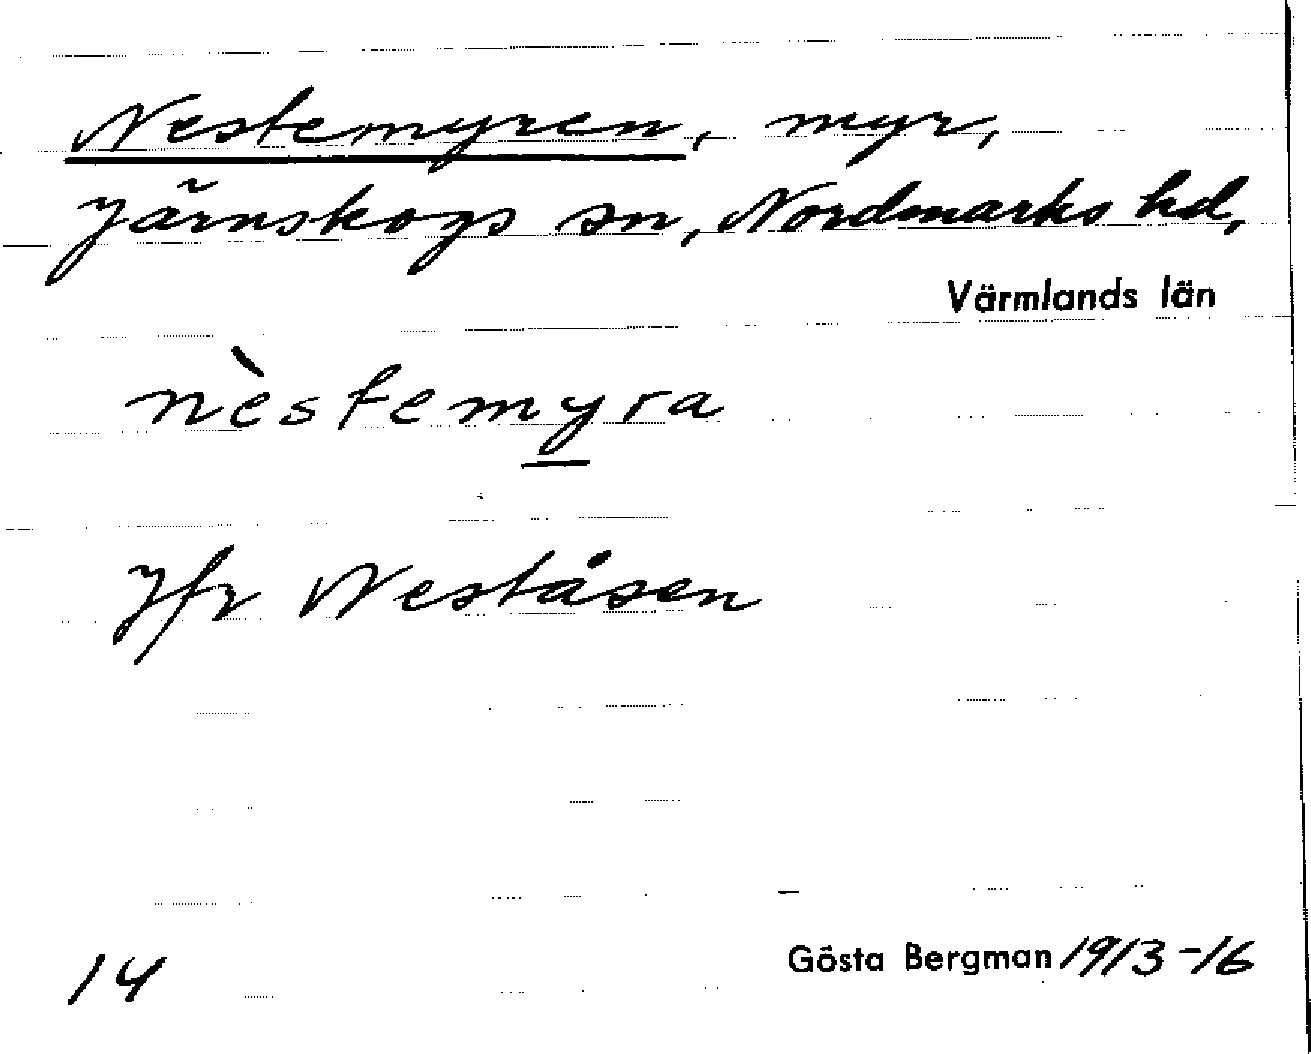 Nestemyren, myr,
Järnskogs sn, Nordmarks hd,
Värmlands län
nèstemyra
Jfr Neståsen
14
Gösta Bergman 1913-16